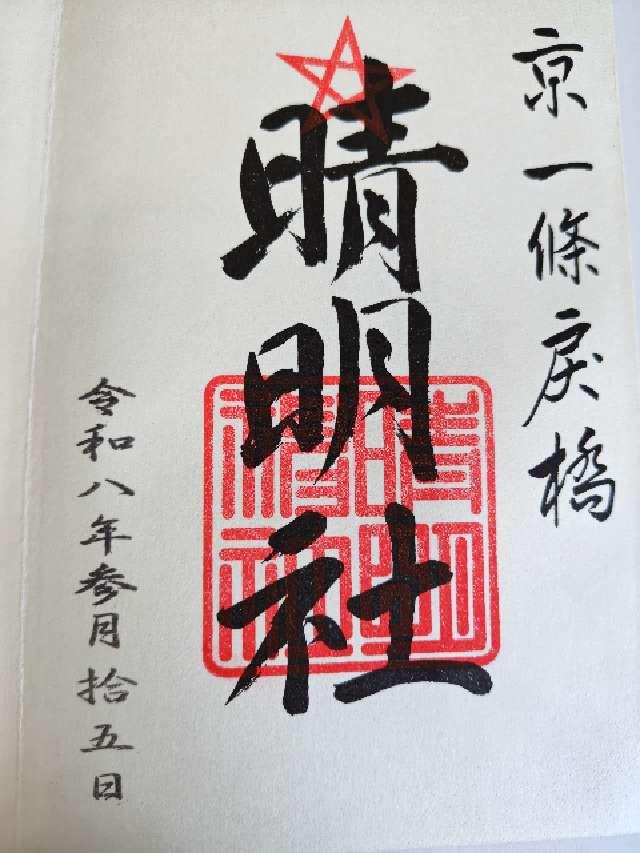 京一條戻橋
晴明社
令和八年参月拾五日